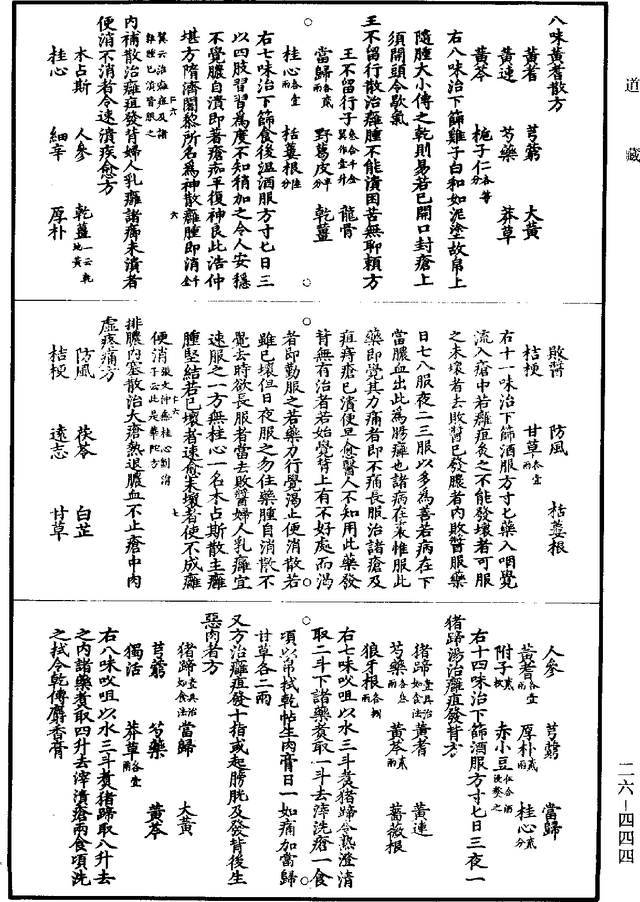 道藏
八味黃耆散方
黃耆 芎藭 大黃
黃連 芍藥 莽草
黃芩 梔子仁各等分
右八味治下篩雞子白和如泥塗故帛上
隨腫大小傅之乾則易若已開口封瘡上
須開頭令歇氣
王不留行散治癰腫不能潰困苦無聊賴方
王不留行子 龍骨
當歸各貳兩 野葛皮半分 乾薑
桂心各壹兩 栝蔞根陸分
右七味治下篩食後温酒服方寸匕日三
以四肢習習爲度不知稍加之令人安穩
不覺膿自潰即著瘡痂平復神良此浩仲
堪方隋濟闍黎所名爲神散癰腫即消
內補散治癰疽發背婦人乳癰諸癤未潰者
便消不消者令速潰疾愈方
木占斯 人參 乾薑一云乾地黃
桂心 細辛 厚朴
敗醬 防風 栝蔞根
桔梗 甘草各壹兩
右十一味治下篩酒服方寸匕藥入咽覺
流入瘡中若癰疽灸之不能發壞者可服
之未壞者去敗醬已發膿者內敗醬服藥
日七八服夜二三服以多爲善若病在下
當膿血出此爲腸癰也諸病在裏惟服此
藥即覺其力痛者即不痛長服治諸瘡及
疽痔瘡已潰便早愈醫人不知用此藥發
背無有治者若始覺背上有不好處而渴
者即勤服之若藥力行覺渴止便消散若
雖已壞但日夜服之勿住藥腫自消散不
覺去時欲長服者當去敗醬婦人乳癰宜
速服之一方無桂心一名木占斯散主癰
腫堅結若已壞者速愈未壞者使不成癰
便消
排膿內塞散治大瘡熱退膿血不止瘡中肉
虛疼痛方
防風 茯苓 白芷
桔梗 遠志 甘草
人參 芎藭 當歸
黃耆各壹兩 厚朴貳兩 桂心貳分
附子貳枚 赤小豆伍合酒浸熬之
右十四味治下篩酒服方寸匕日三夜一
猪蹄湯治癰疽發背方
猪蹄壹具治如食法 黃耆 黃連
芍藥各叁兩 黃芩貳兩 薔薇根
狼牙根各捌兩
右七味㕮咀以水三斗煮猪蹄令熟澄清
取二斗下諸藥煮取一斗去滓洗瘡一食
頃以帛拭乾帖生肉膏日一如痛加當歸
甘草各二兩
又方治癰疽發十指或起膀胱及發背後生
惡肉者方
猪蹄壹具治如食法 當歸 大黃
芎藭 芍藥 黃芩
獨活 莽草各壹兩
右八味㕮咀以水三斗煮猪蹄取八升去
之內諸藥煮取四升去滓漬瘡兩食頃洗
之拭令乾傅麝香膏
二六-四四四